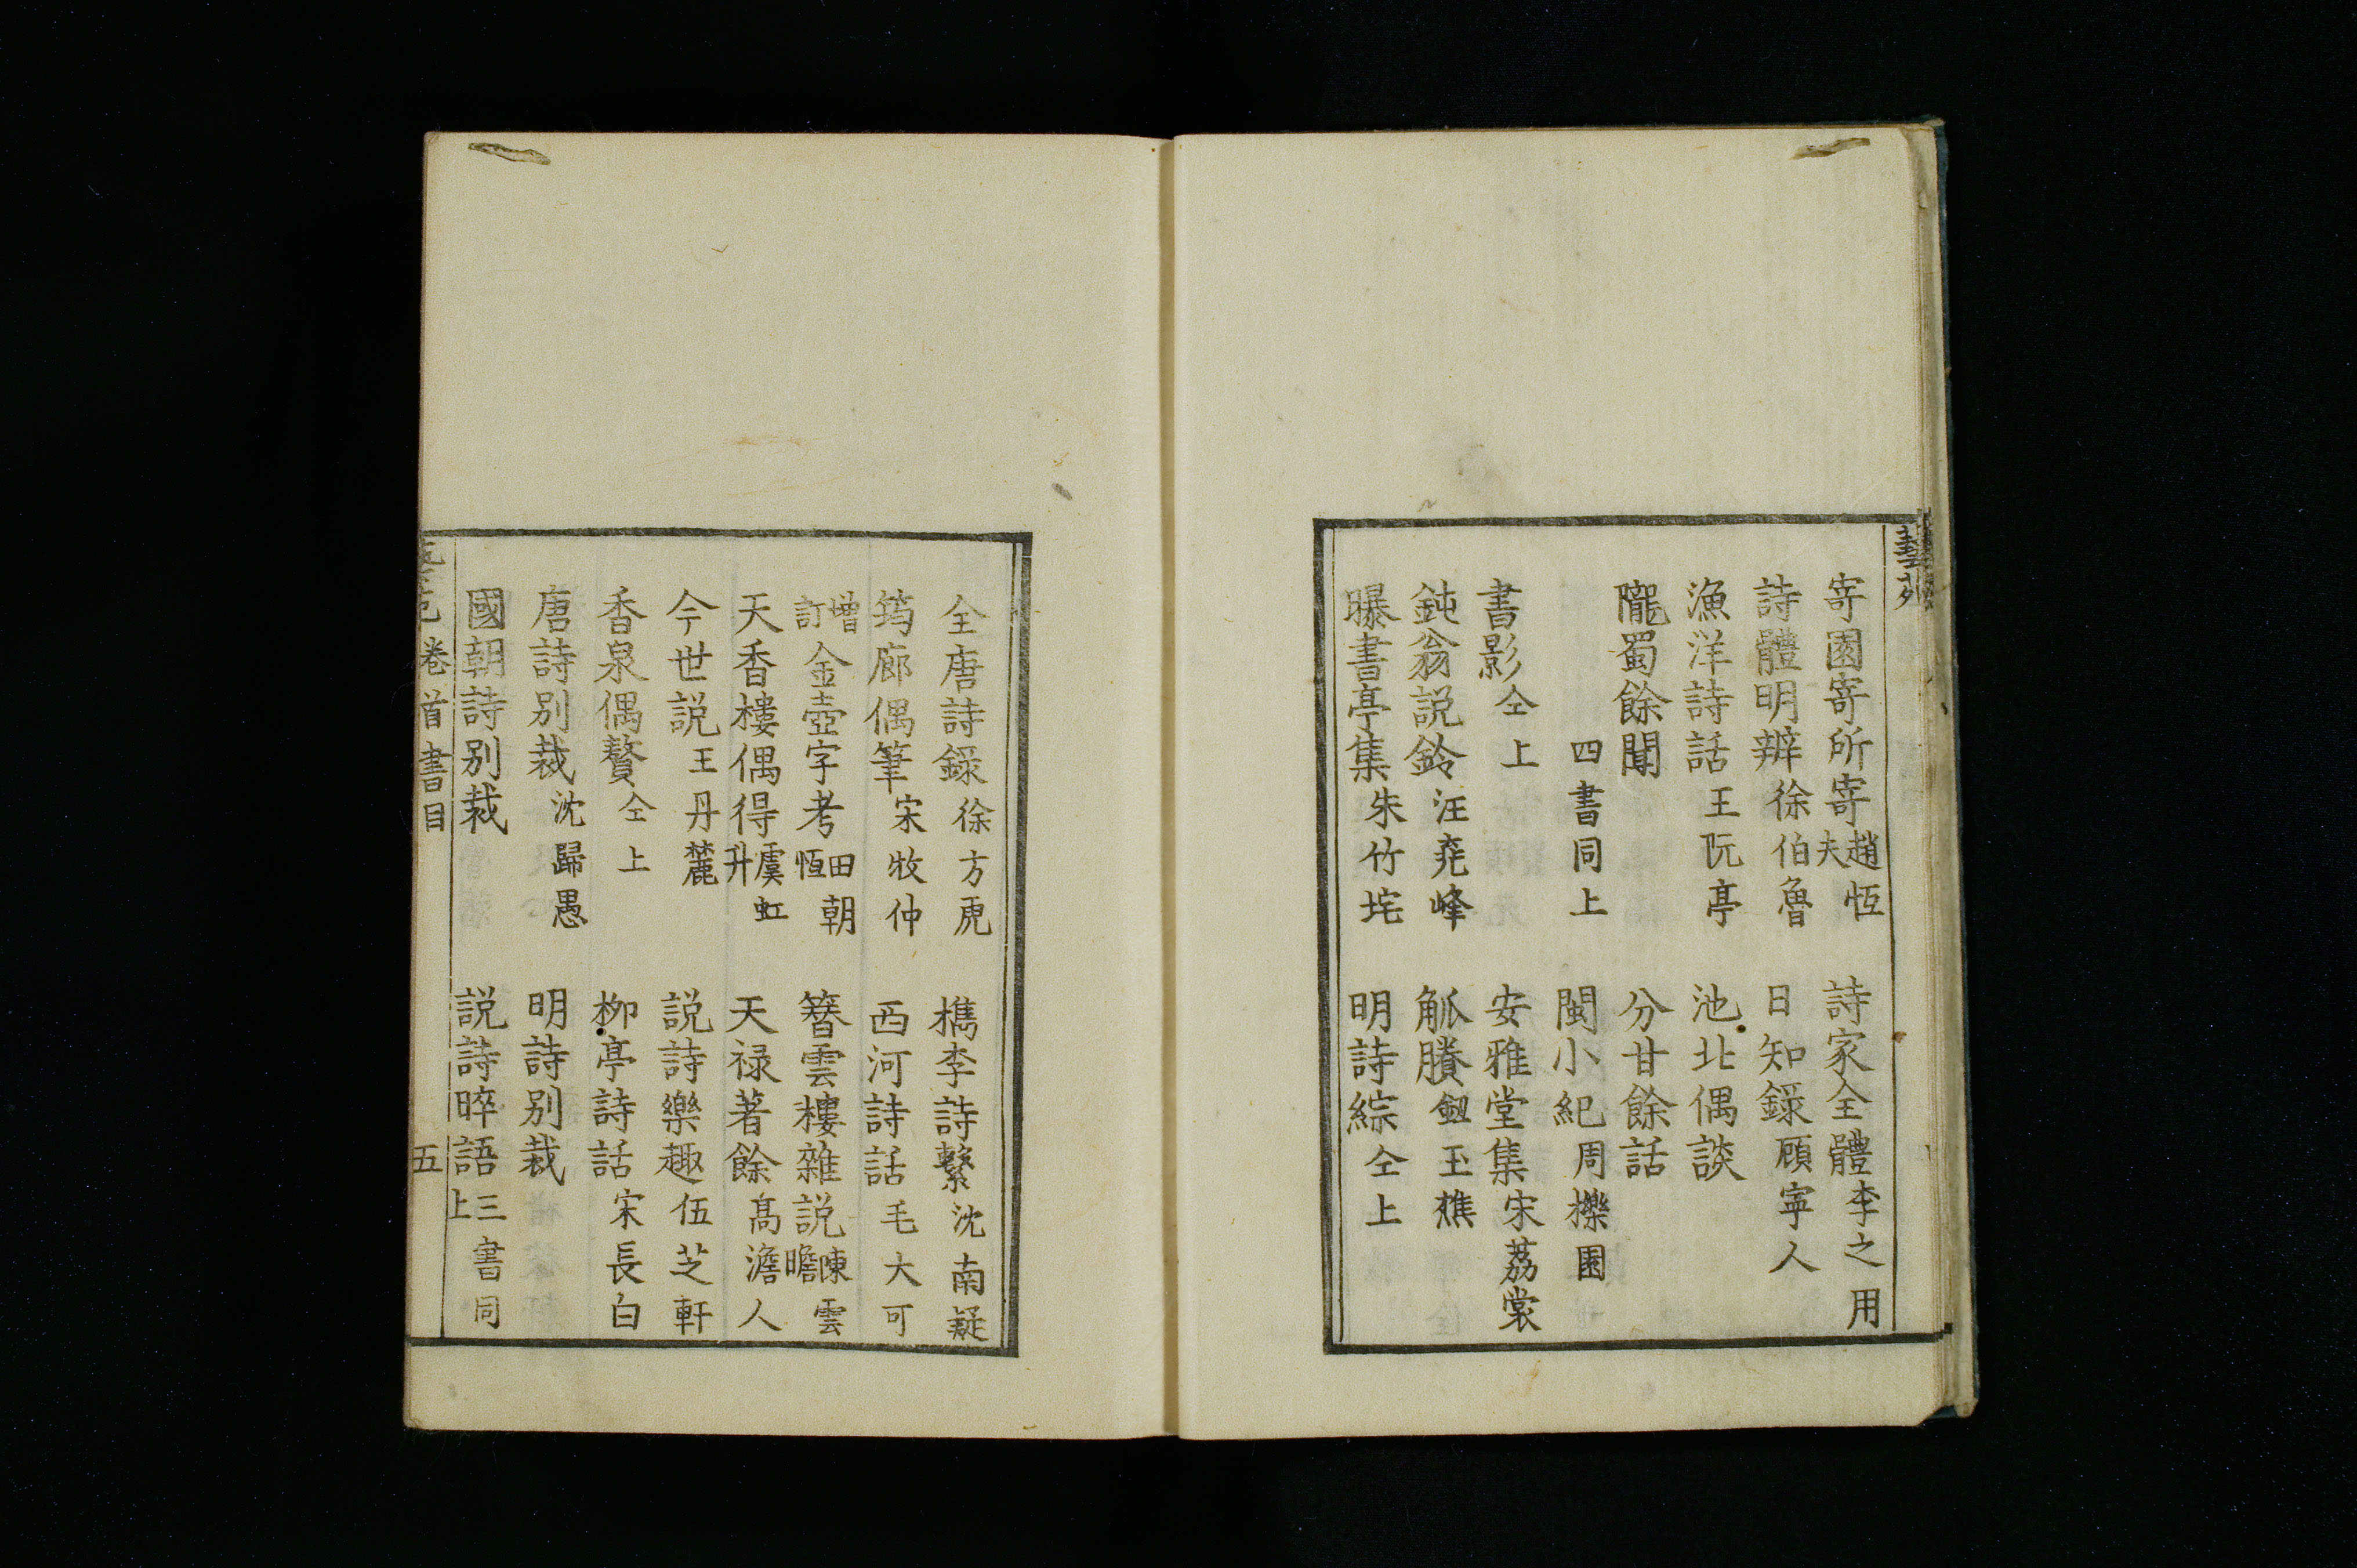 藝苑
寄園寄所寄 趙恆夫 詩家全體 李之用
詩體明辨 徐伯魯 日知錄 顧寧人
漁洋詩話 王阮亭 池北偶談
隴蜀餘聞 分甘餘話
四書同上 閩小紀 周櫟園
書影 仝上 安雅堂集 宋荔裳
鈍翁説鈴 汪堯峰 觚賸 鈕玉樵
曝書亭集 朱竹垞 明詩綜 仝上
全唐詩録 徐方虎 檇李詩繫 沈南疑
筠廊偶筆 宋牧仲 西河詩話 毛大可
增訂金壺字考 田朝恆 簪雲樓雜説 陳雲瞻
天香樓偶得 虞虹升 天禄著餘 高澹人
今世説 王丹麓 説詩樂趣 伍芝軒
香泉偶贅 仝上 柳亭詩話 宋長白
唐詩別裁 沈歸愚 明詩別裁
國朝詩別裁 説詩晬語 三書同上
卷首 書目 五